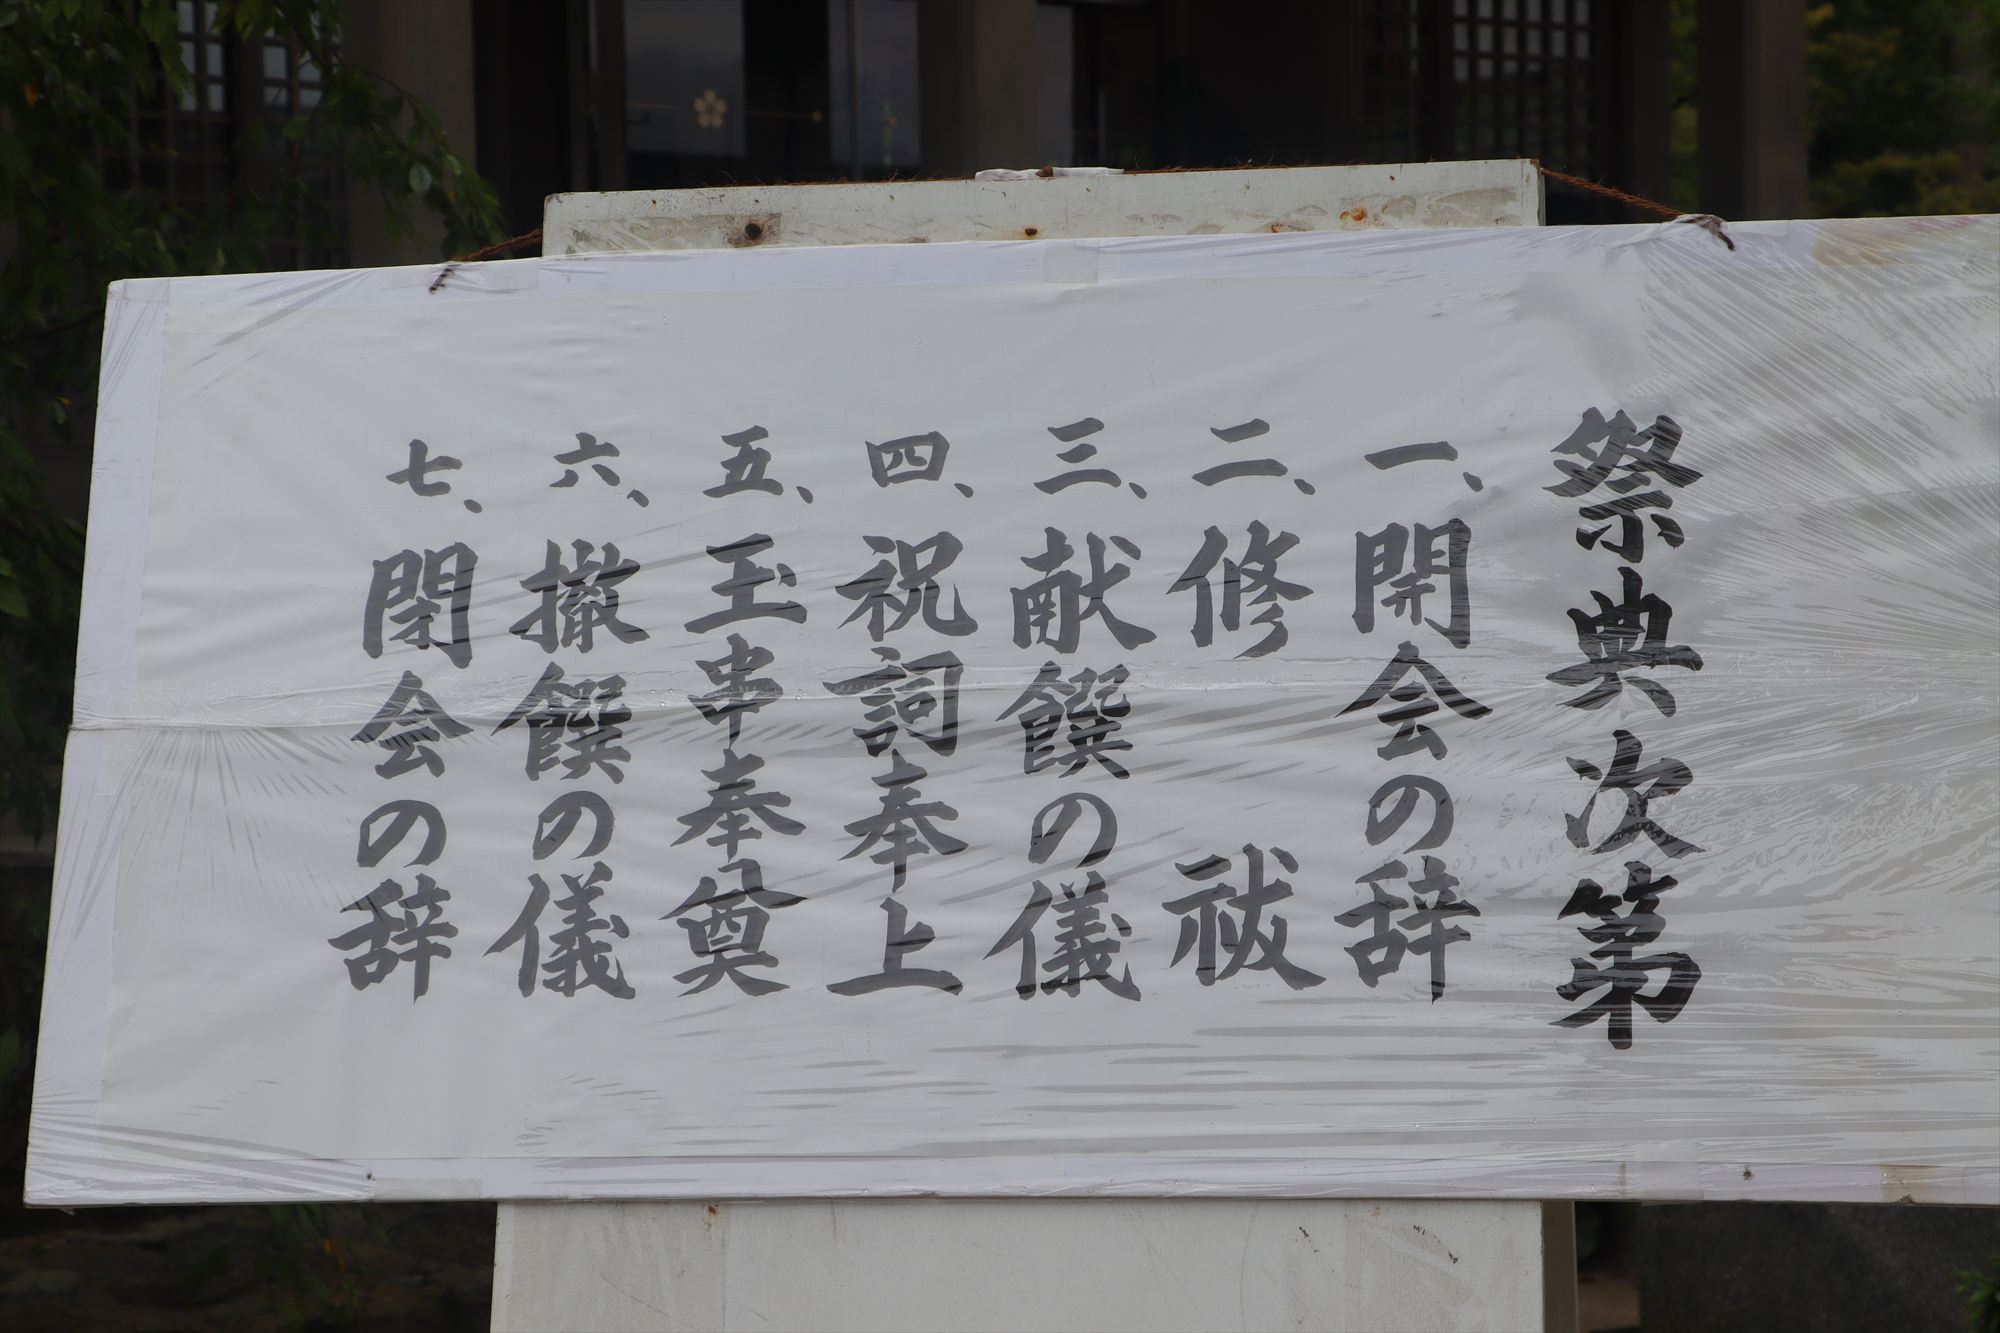 祭典次第
一、開会の辞
二、修祓
三、献饌の儀
四、祝詞奉上
五、玉串奉奠
六、撤饌の儀
七、閉会の辞